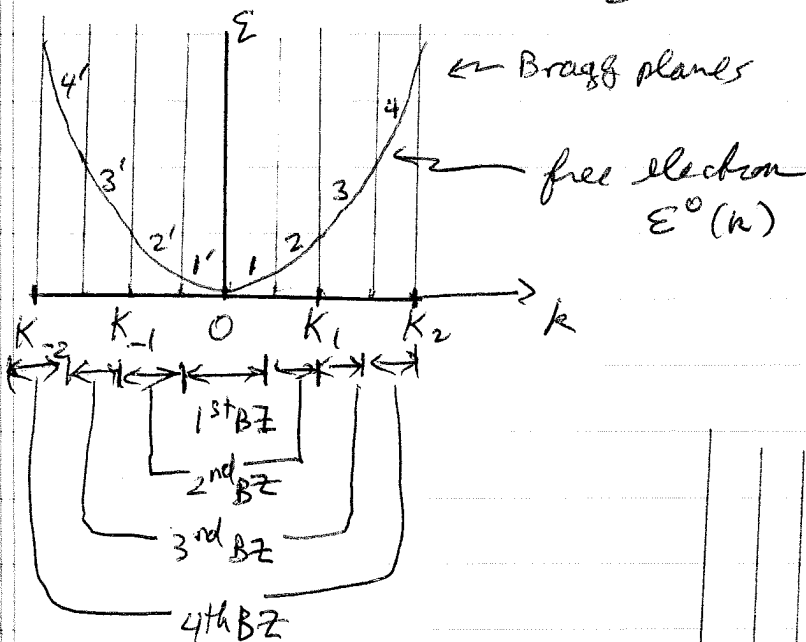 ε
← Bragg planes
4' 4
free electron
ε⁰(k)
3' 3
2' 2
1' 1
K₋₂ K₋₁ 0 K₁ K₂ k
1st BZ
2nd BZ
3nd BZ
4th BZ